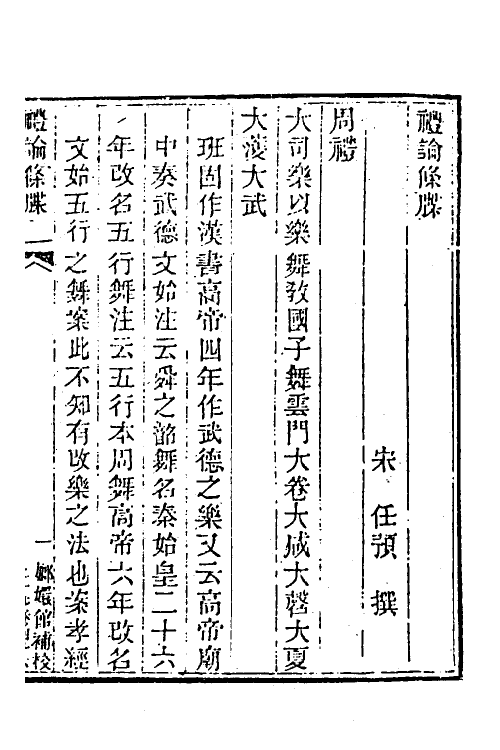 禮論條牒
宋 任預 撰
周禮
大司樂以樂舞敎國子舞雲門大卷大咸大磬大夏
大濩大武
班固作漢書高帝四年作武德之樂又云高帝廟
中奏武德文始注云舜之韶舞名秦始皇二十六
年改名五行舞注云五行本周舞高帝六年改名
文始五行之舞案此不知有改樂之法也案孝經
禮論條牒
一
嫏嬛館補校